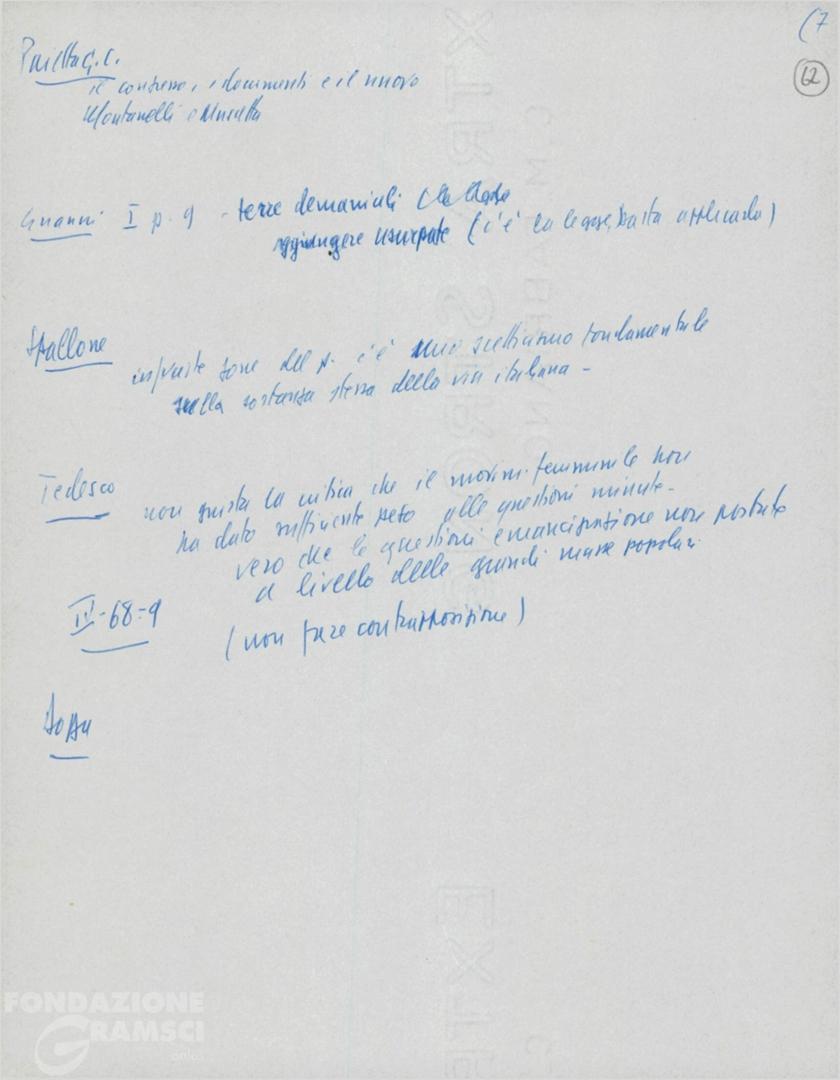 (7
62
Pajetta G.C.
il congresso, i documenti e il nuovo
Montanelli e
I p. 9 - terre demaniali
aggiungere usurpate (c'è la legge, basta applicarla)
Stallone
in parte zone del p. c'è uno scetticismo fondamentale
sulla sostanza stessa della via italiana -
Tedesco
non giusta la critica che il movim. femminile non
ha dato sufficiente peso alle questioni minute -
vero che le questioni emancipazione non portate
a livello delle grandi masse popolari
IV-68-9
(non fare contrapposizione)
FONDAZIONE
GRAMSCI
onlus